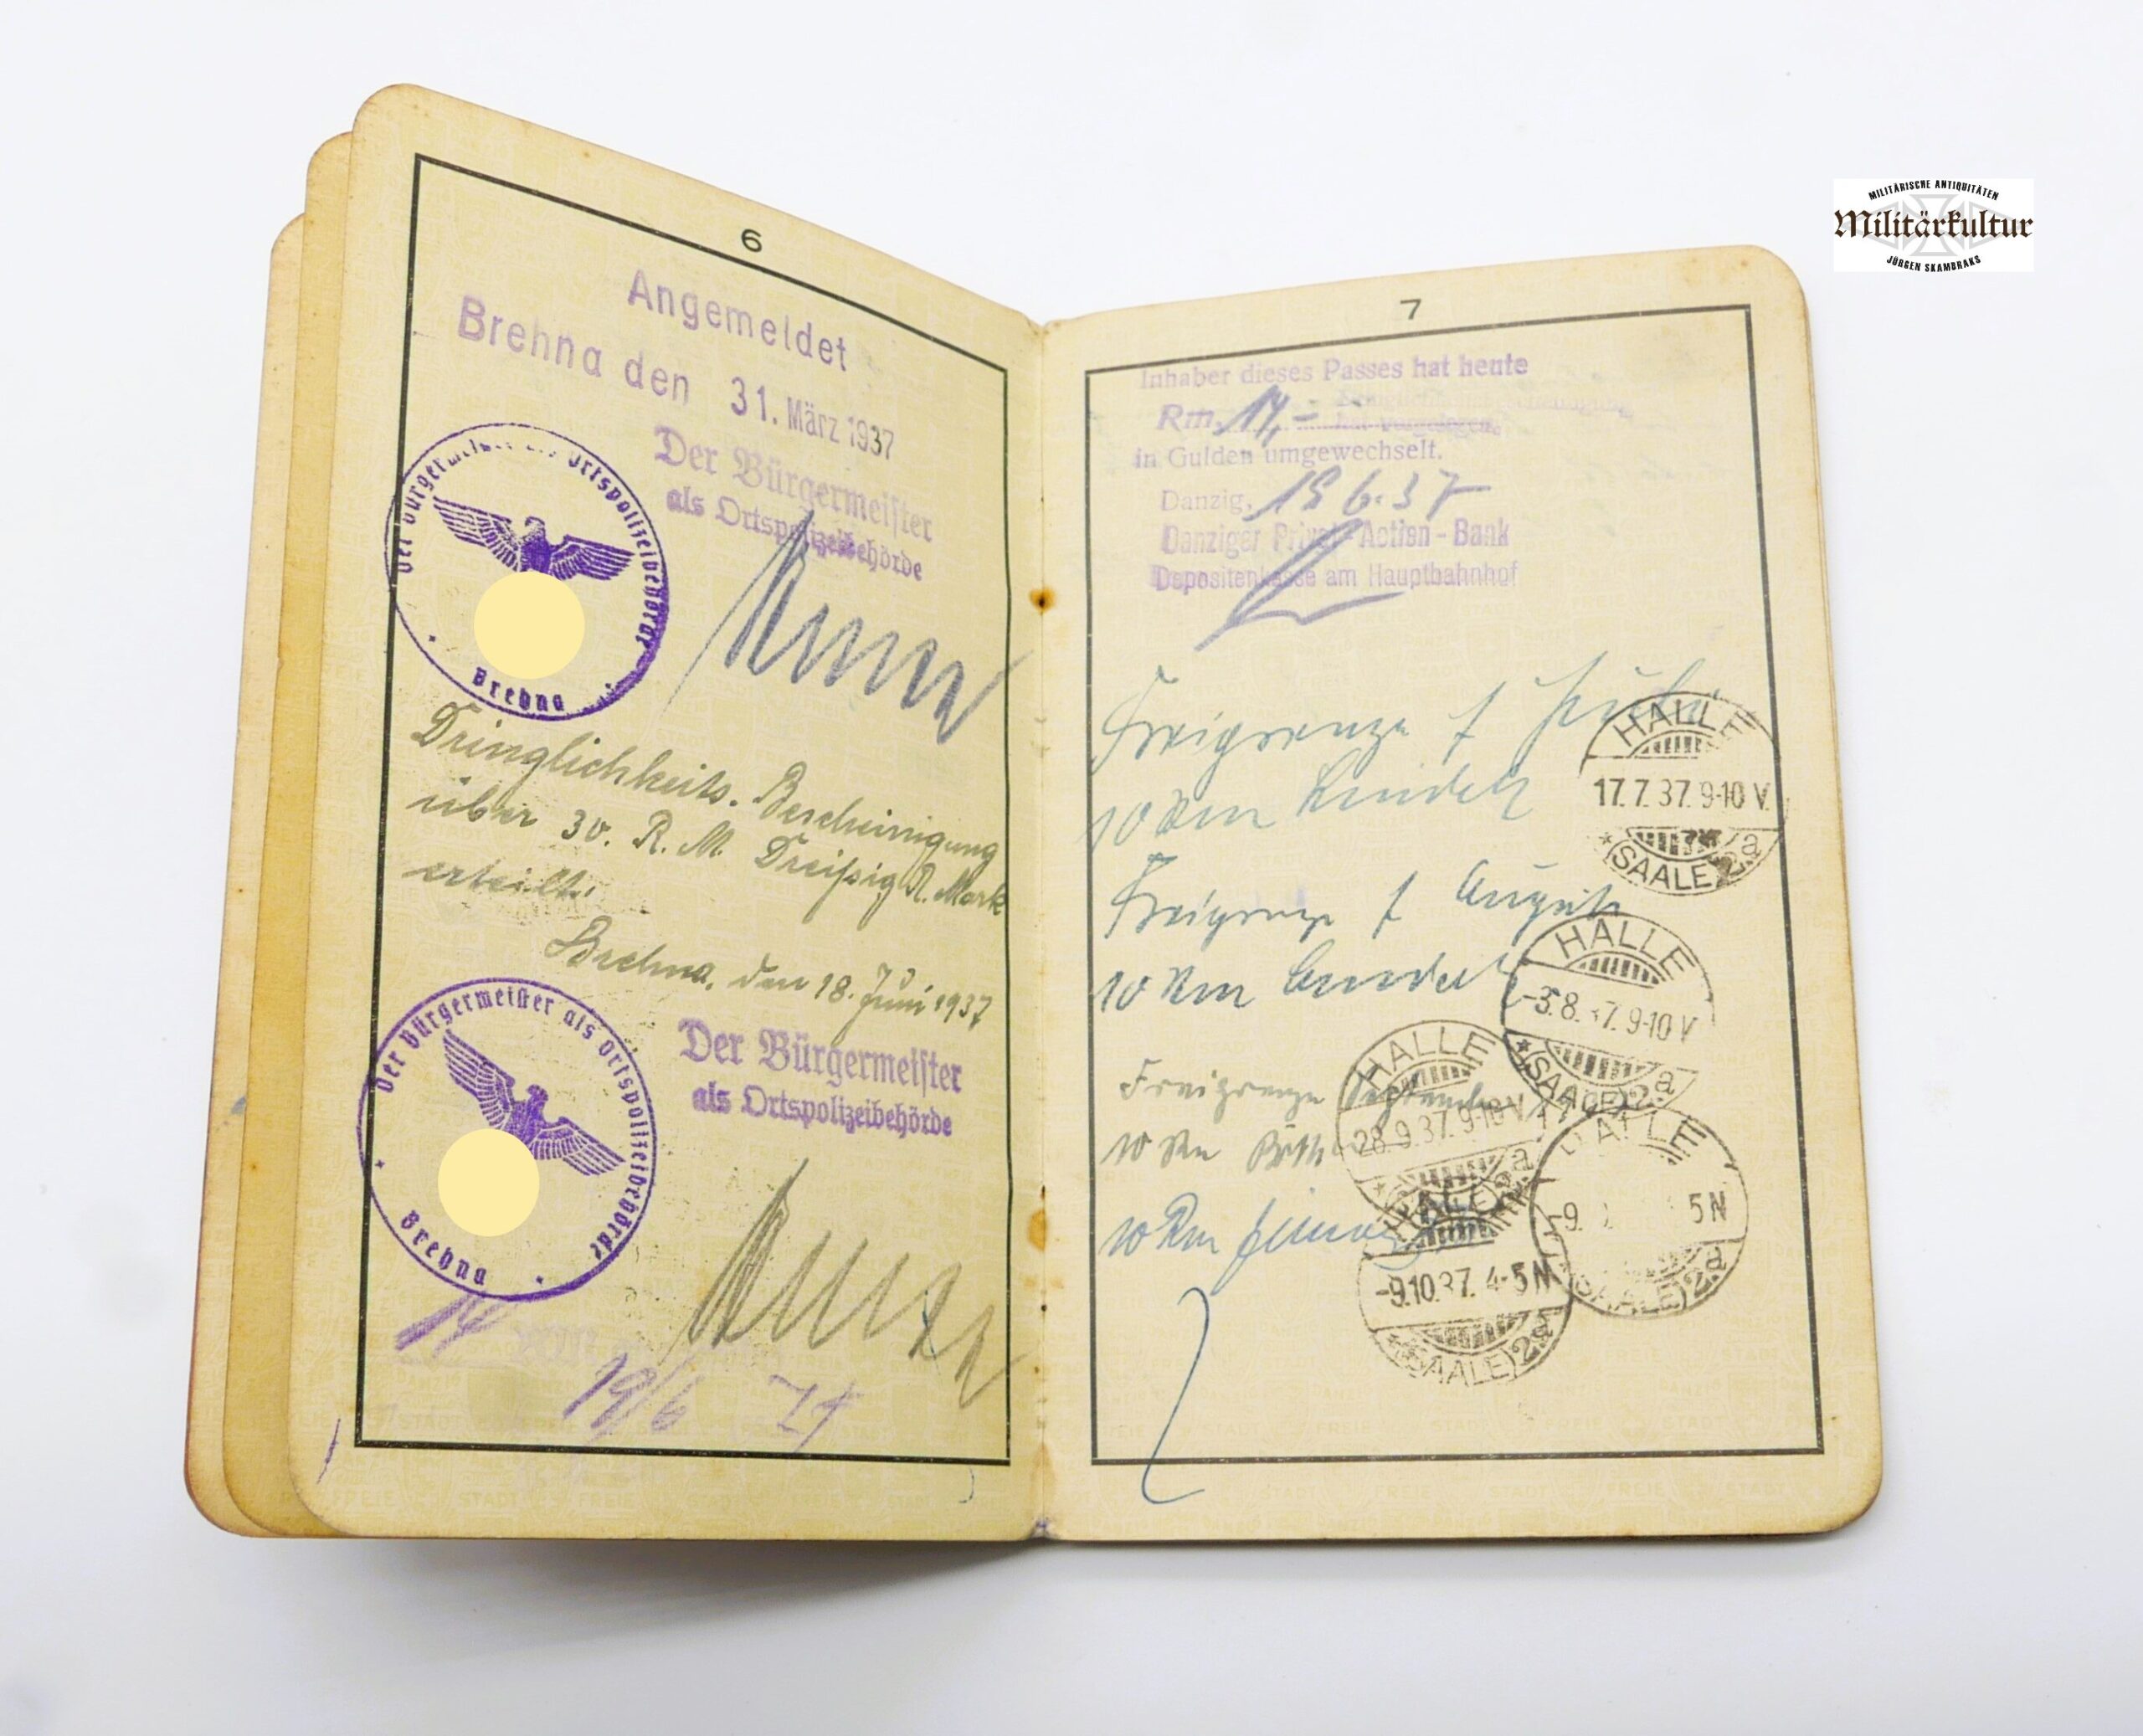 MILITÄRISCHE ANTIQUITÄTEN
Militärkultur
JÜRGEN SKAMBRAKS
6
Angemeldet
Brehna den 31. März 1937
Der Bürgermeister
als Ortspolizeibehörde
Der Bürgermeister als Ortspolizeibehörde
Brehna
Dringlichkeits. Bescheinigung
über 30. R. M. Dreißig R. Mark
erteilt.
Brehna, den 18. Juni 1937
Der Bürgermeister
als Ortspolizeibehörde
Der Bürgermeister als Ortspolizeibehörde
Brehna
19/6
7
Inhaber dieses Passes hat heute
Rm. 14,-
in Gulden umgewechselt.
Danzig, 19 6. 37
Danziger Privat-Actien-Bank
Depositenkasse am Hauptbahnhof
Freigrenze f Juli
10 Rm
HALLE
17.7.37. 9-10 V.
(SAALE) 2a
Freigrenze f August
10 Rm
HALLE
-3.8.37. 9-10 V
(SAALE) 2a
Freigrenze September
10 Rm
HALLE
28.9.37. 9-10 V
10 Rm
HALLE
-9.10.37. 4-5 N
(SAALE) 2a
HALLE
-9. 5 N
(SAALE) 2a
FREIE STADT DANZIG